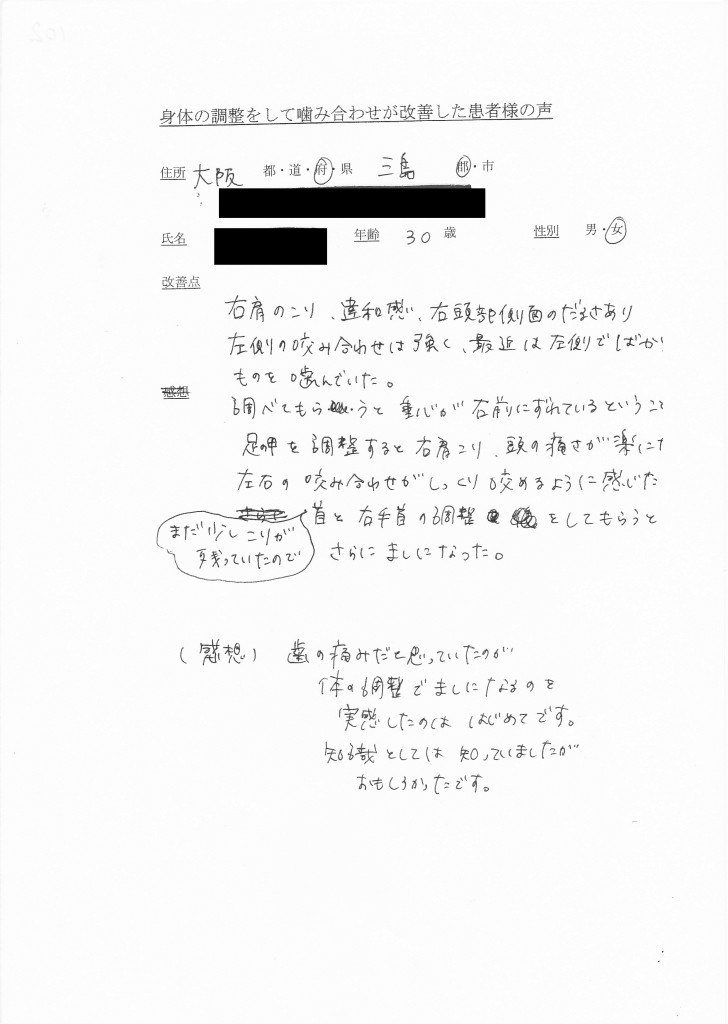 身体の調整をして噛み合わせが改善した患者様の声
住所 大阪 都・道・府・県 三島 郡・市
氏名 年齢 30 歳 性別 男・女
改善点
右肩のこり、違和感、右頭部側面のだるさあり
左側の咬み合わせは強く、最近は左側でばか
ものを噛んでいた。
感想
調べてもらうと重心が右前にずれているというこ
足の甲を調整すると右肩こり、頭の痛さが楽に
左右の咬み合わせがしっくり咬めるように感じた
さらに 首と右手首の調整をしてもらうと
まだ少しこりが
残っていたので
さらにましになった。
(感想) 歯の痛みだと思っていたのが
体の調整でましになるのを
実感したのははじめてです。
知識としては知っていましたが
おもしろかったです。